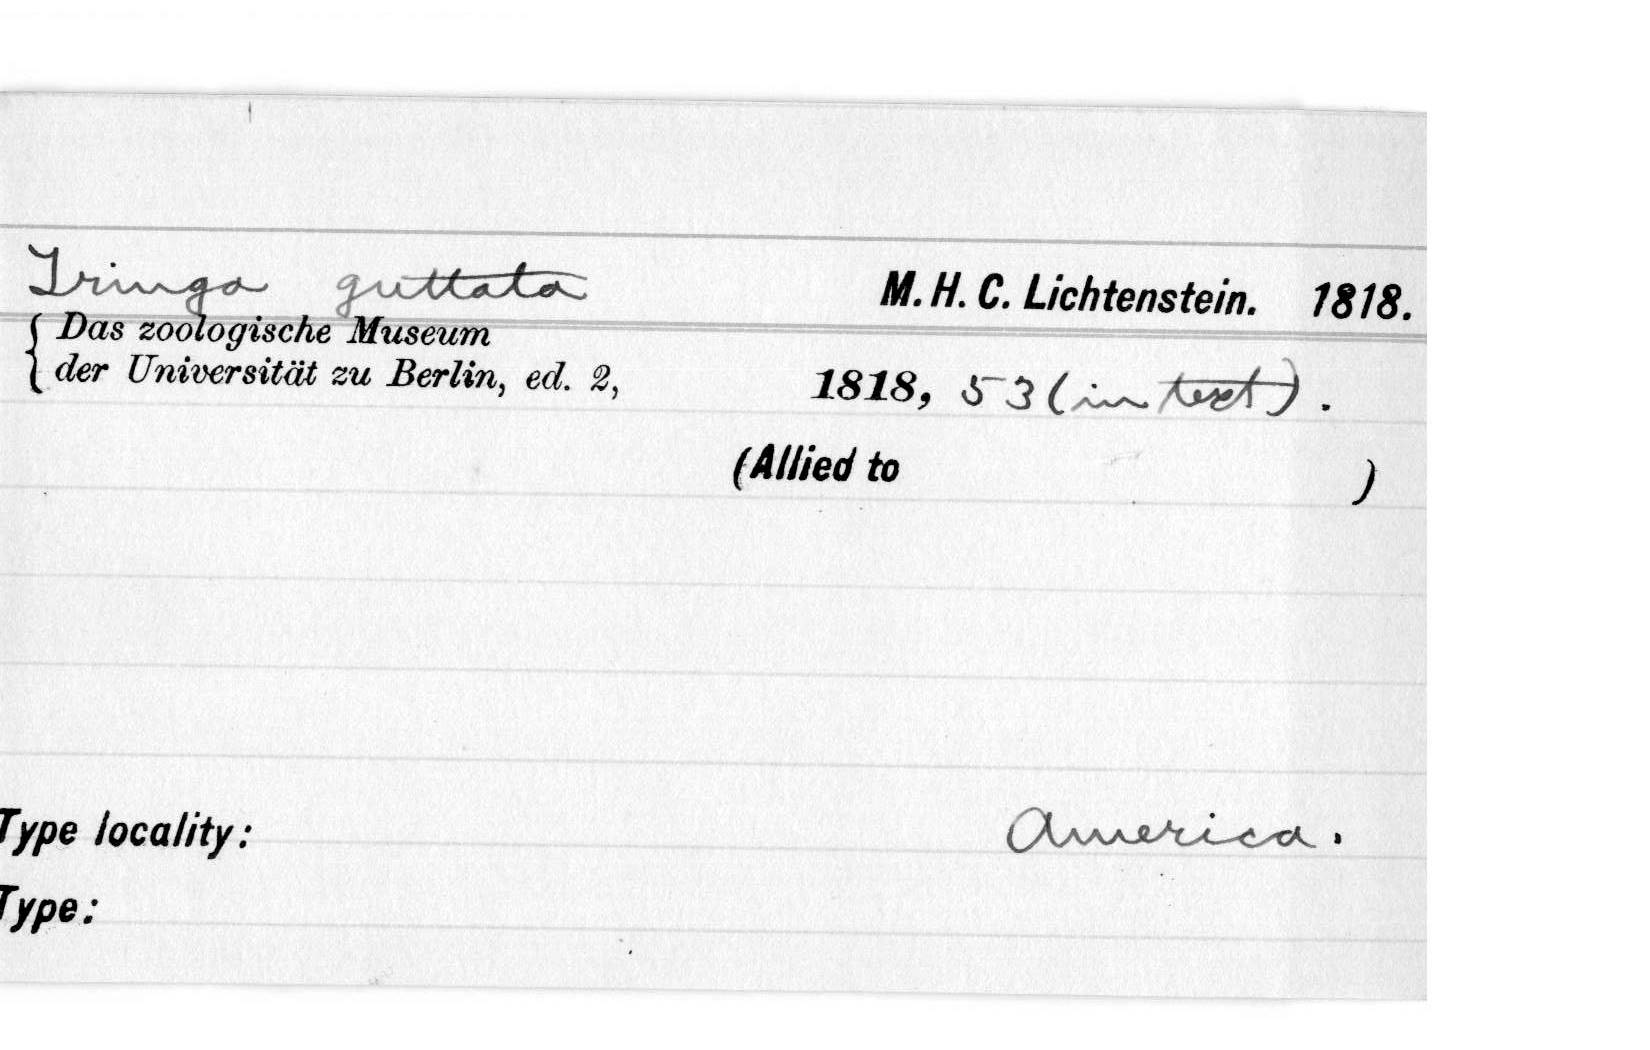 Tringa guttata M. H. C. Lichtenstein. 1818.
Das zoologische Museum
der Universität zu Berlin, ed. 2, 1818, 53 (in text).
(Allied to )
Type locality: America.
Type: